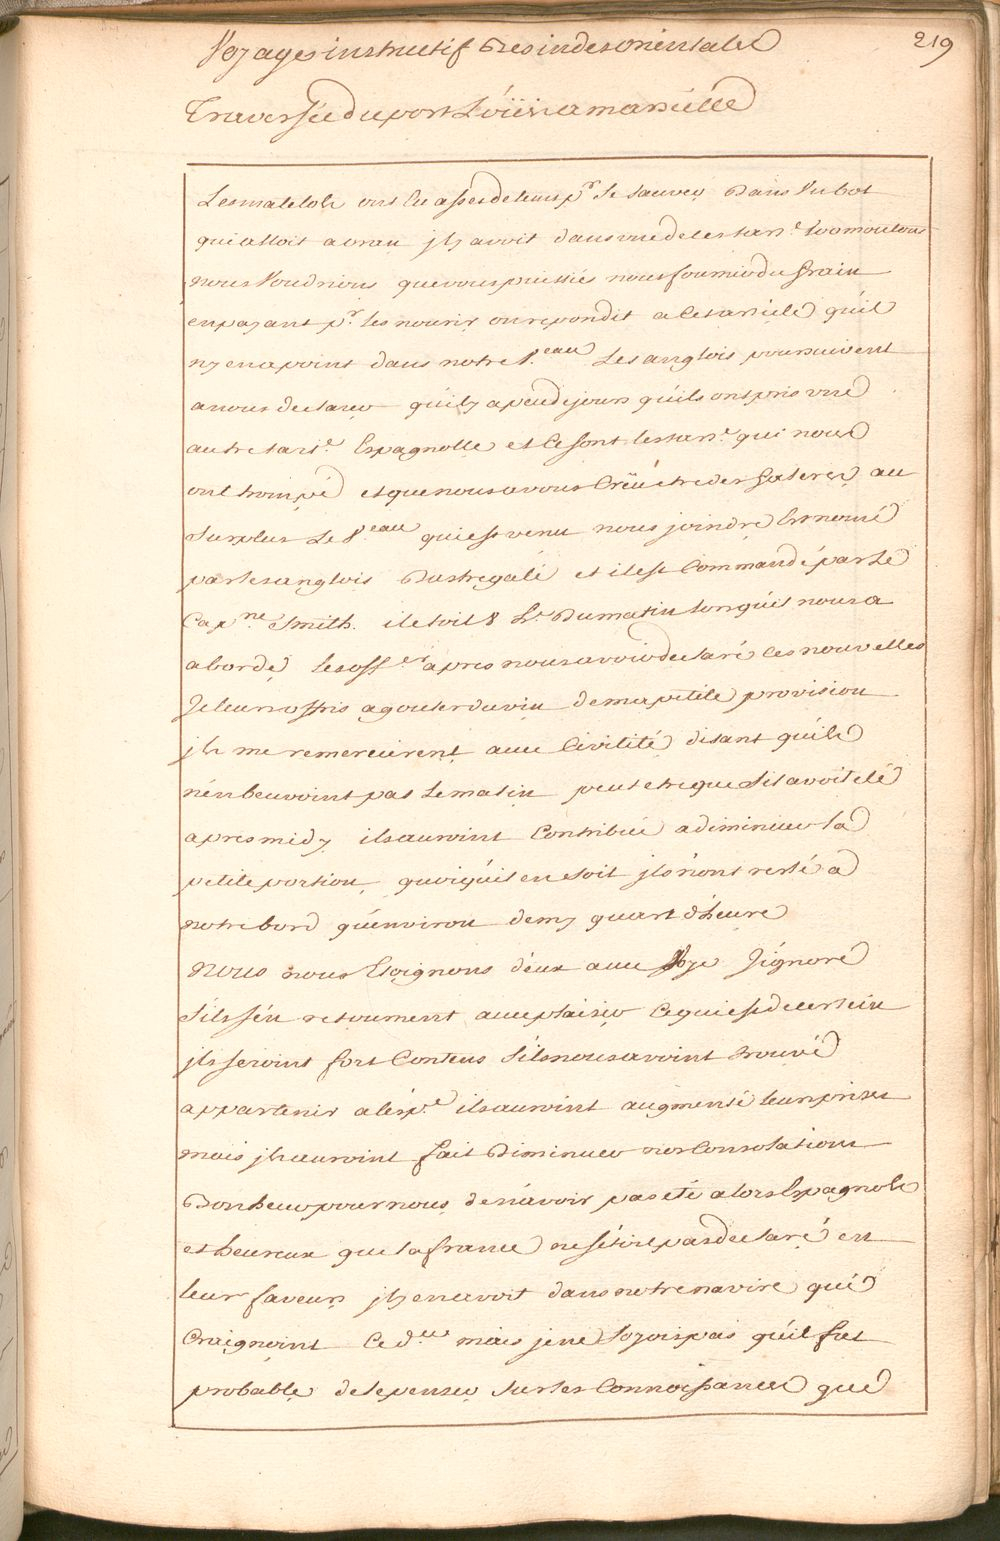 Voyages instructif Des indes orientales
219
Traversée du port Loüis a marseille
Les matelots ont Eu assés de tems pr. Se sauver Dans Un bot
qui alloit a Vrau jly avoit dans une de ces tarne. 400 moutons
nous Voudrions que vous puissiés nous fournir du Grain
en payant pr. les nourir on repondit a Cet article qu'il
ny en a point dans notre V.eau Les anglois poursuivent
a nous declarer qu'il y a peu de jours qu'ils ont pris une
autre tarte. Espagnolle et Ce sont les tarne. qui nous
ont trompé et que nous avons Crüe être des Galeres au
Surplus Le V.eau qui est venu nous joindre Est nomé
par les anglois Dastregalé et il est Commandé par Le
Capne. Smith. il etoit 8 hr. Du matin lorsqu'il nous a
abordé les offers. apres nous avoir declaré ces nouvelles
Je leur offris a gouter du vin de ma petite provision
jls me remercierent avec Civilité disant qu'ils
n'en beuvoint pas Le matin peut etre que S'il avoit eté
apres midy ils auroint Contribué a diminuer la
petite portion quoiqu'il en soit jls n'ont resté a
notre bord qu'environ demy quart d'heure
nous nous Eloignons d'eux avec Joye J'ignore
S'ils s'en retournent avec plaisir Ce qui est de certein
jls seroint fort Contens S'ils nous avoint trouvé
appartenir a l'espe. ils auroint augmenté leur prises
mais jls auroint fait Diminuer nos Consolations
Bonheur pour nous de n'avoir pas eté alors Espagnols
et heureux que la france ne s'étoit pas declaré en
leur faveur jly en avoit dans notre navire qui
Craignoint Ce d. mais je ne Voyois pas qu'il fut
probable de le penser Sur les Connoissances que